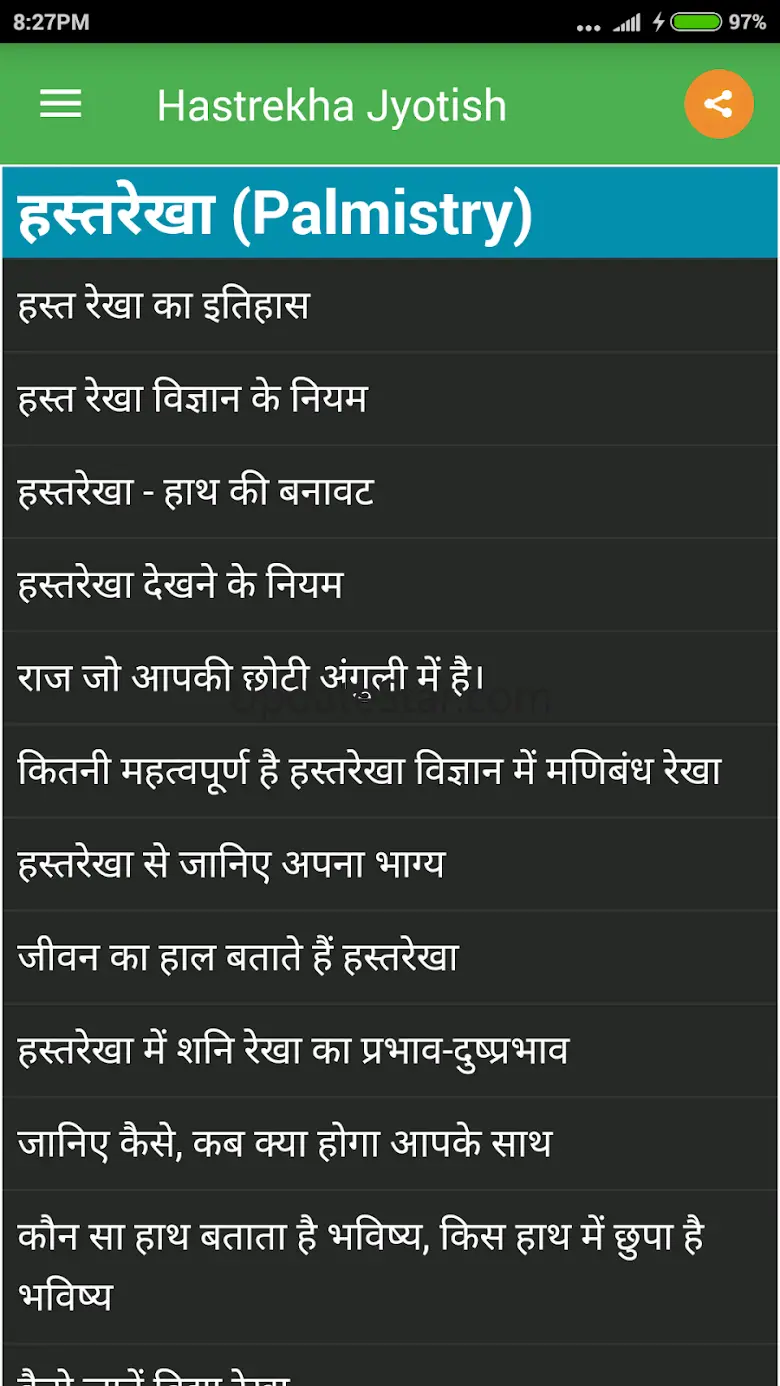 8:27PM
97%
Hastrekha Jyotish
हस्तरेखा (Palmistry)
हस्त रेखा का इतिहास
हस्त रेखा विज्ञान के नियम
हस्तरेखा - हाथ की बनावट
हस्तरेखा देखने के नियम
राज जो आपकी छोटी अंगुली में है।
कितनी महत्वपूर्ण है हस्तरेखा विज्ञान में मणिबंध रेखा
हस्तरेखा से जानिए अपना भाग्य
जीवन का हाल बताते हैं हस्तरेखा
हस्तरेखा में शनि रेखा का प्रभाव-दुष्प्रभाव
जानिए कैसे, कब क्या होगा आपके साथ
कौन सा हाथ बताता है भविष्य, किस हाथ में छुपा है
भविष्य